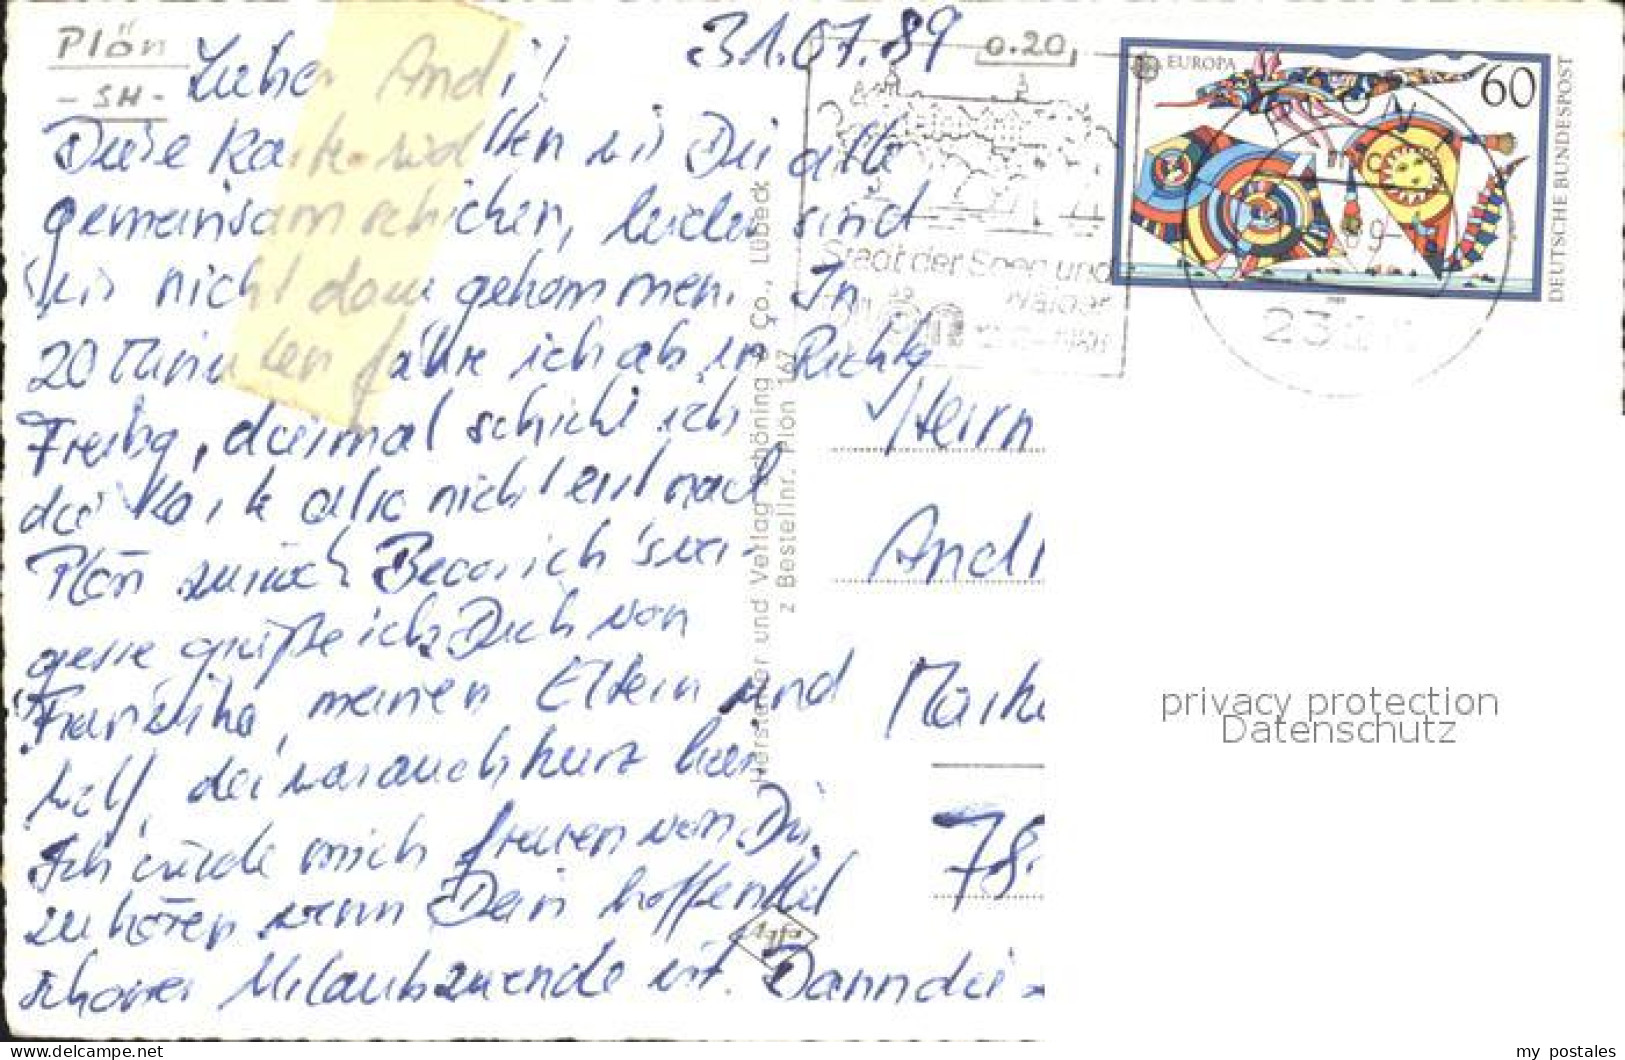 Plön
- SH -
0.20
31.07.89
Lieber Andi!
Diese Karte wollten wir Dir alle
gemeinsam schicken, leider sind
wir nicht dazu gekommen. In
20 Minuten fahre ich ab in Richtg
Freibg, diesmal schicke ich
die Karte also nicht erst nach
Plön zurück. Bevor ich's ver-
gesse grüße ich Dich von
Franziska, meinen Eltern und
Wolf, der war auch kurz hier.
Ich würde mich freuen von Dir
zu hören wenn Dein hoffentl
schöner Urlaub zuende ist. Dann die
Herrn
Andr
78
EUROPA
60
DEUTSCHE BUNDESPOST
PLÖN
Stadt der Seen und
Wälder
Hersteller und Verlag Schöning & Co., Lübeck
z Bestellnr. Plön 167
Agfa
privacy protection
Datenschutz
my postales